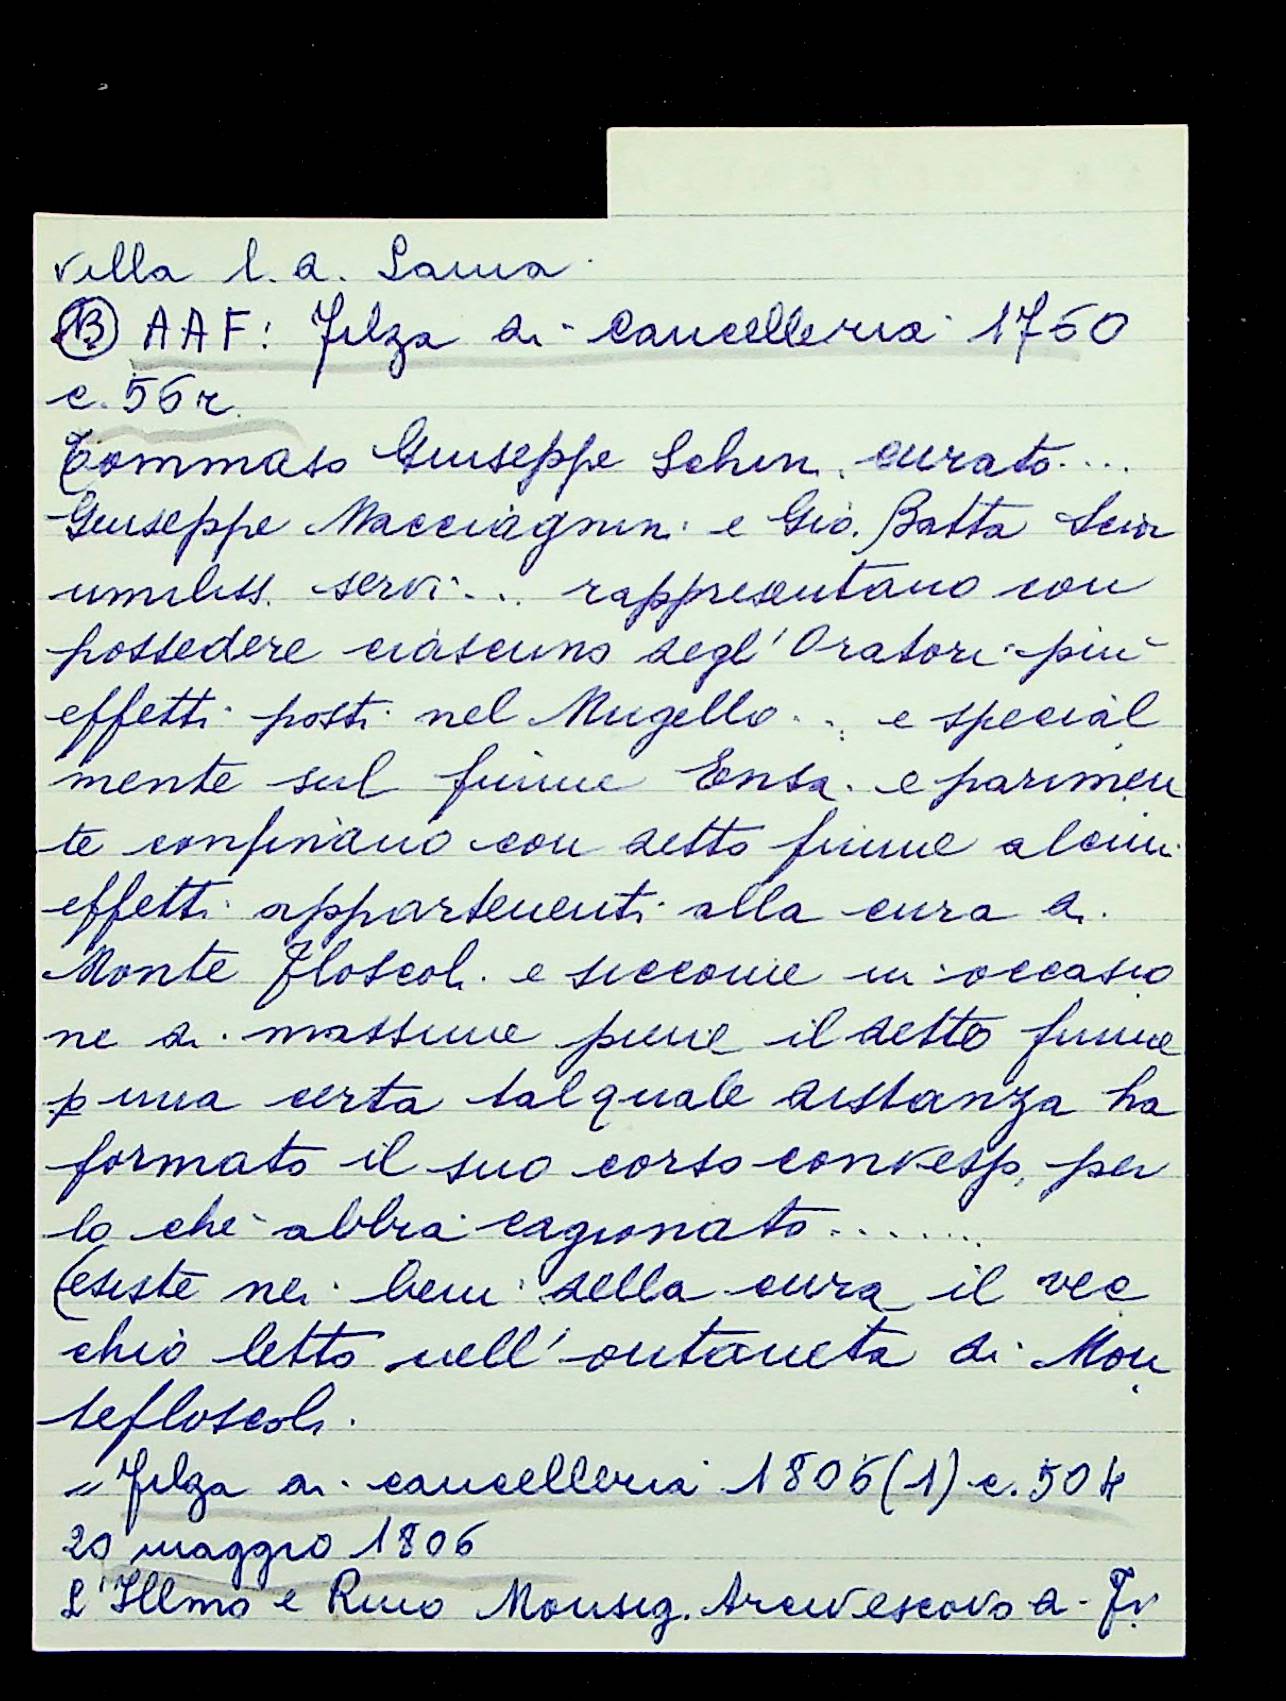 villa l.a. Saura
(B) AAF: Filza di cancelleria 1760
c. 56r.
Tommaso Giuseppe Schin. curato....
Giuseppe Macciagnini e Gio. Batta
umiliss. servi... rappresentano con
possedere ciascuno degl'Oratori più
effetti posti nel Mugello... e special
mente sul fiume Ensa. e parimen
te confinano con detto fiume alcuni
effetti appartenenti alla cura di
Monte Floscoli e siccome in occasio
ne di massime piene il detto fiume
p una certa tal quale distanza ha
formato il suo corso convesp, per
lo che abbia cagionato.......
(esiste nei beni della cura il vec
chio letto nell'ontaneta di Mon
tefloscoli.
" Filza di cancelleria 1806(1) c. 504
20 maggio 1806
L'Illmo e Rmo Monsig. Arcivescovo di Fi